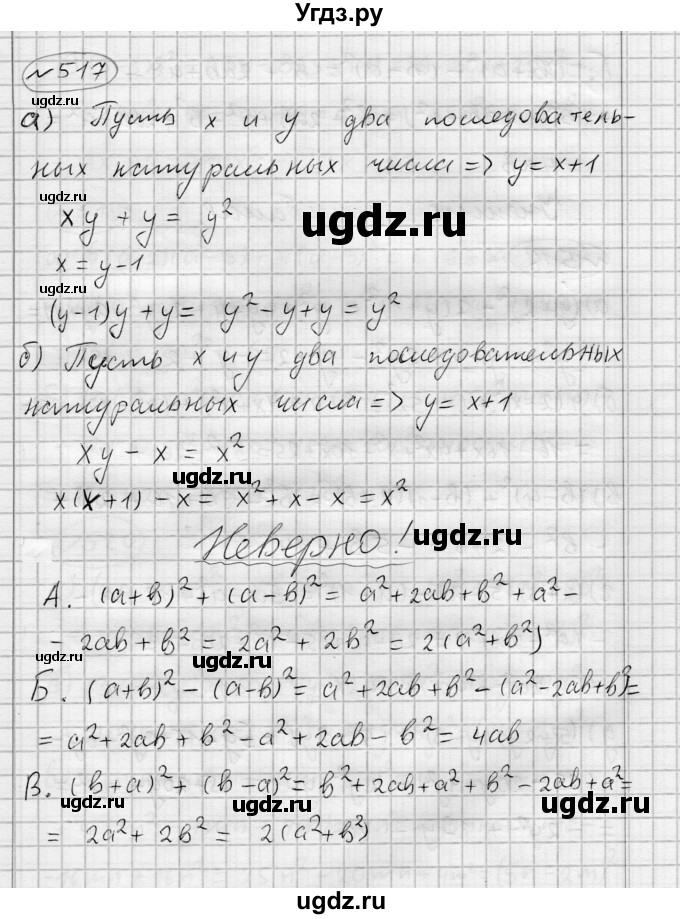 Угдз.ру
№517
ugdz.ru
а) Пусть x и y два последователь-
ных натуральных числа => y = x+1
ugdz.ru
xy + y = y²
ugdz.ru
x = y-1
ugdz.ru
(y-1)y + y = y² - y + y = y²
б) Пусть x и y два последовательных
ugdz.ru
натуральных числа => y = x+1
xy - x = x²
ugdz.ru
x(x+1) - x = x² + x - x = x²
Неверно!
ugdz.ru
А. (a+b)² + (a-b)² = a² + 2ab + b² + a² -
- 2ab + b² = 2a² + 2b² = 2(a²+b²)
ugdz.ru
Б. (a+b)² - (a-b)² = a² + 2ab + b² - (a²-2ab+b²) =
= a² + 2ab + b² - a² + 2ab - b² = 4ab
ugdz.ru
В. (b+a)² + (b-a)² = b² + 2ab + a² + b² - 2ab + a² =
ugdz.ru
= 2a² + 2b² = 2(a²+b²)
ugdz.ru
ugdz.ru